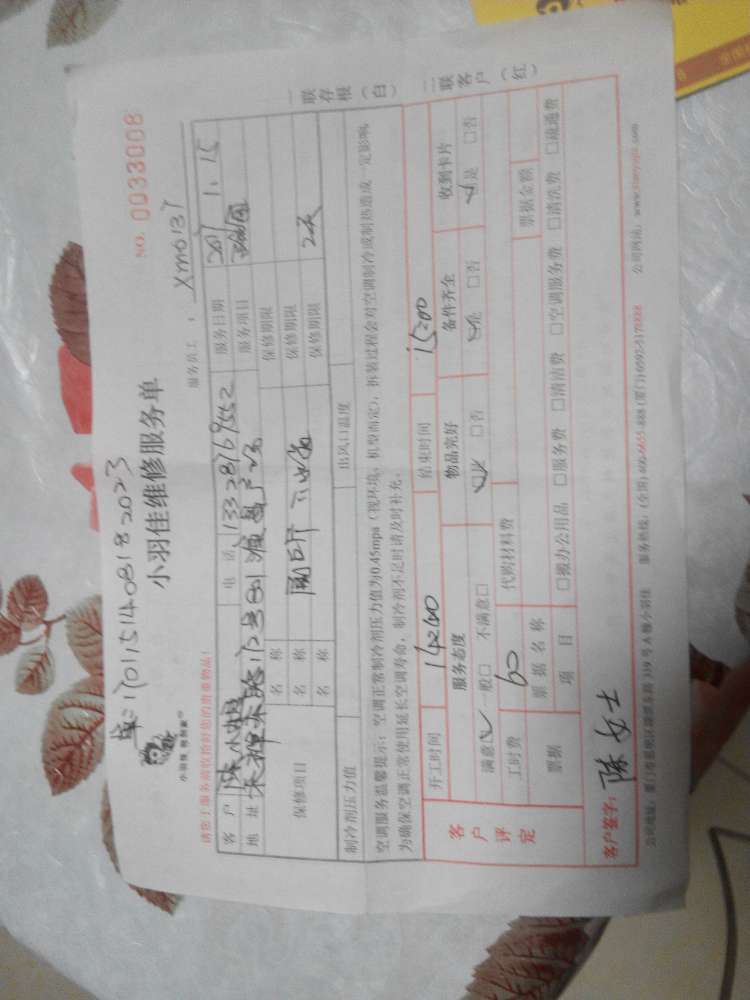 单:1701151408182023
NO. 0033008
小羽佳维修服务单
小羽佳
服务员工: Xm0137
请您于服务前收拾好您的贵重物品!
客 户 陈小姐 电 话 13328769552 服务日期 2017 1.15
地 址 服务项目
保修项目 名 称 保修期限
名 称 保修期限
名 称 保修期限 2天
制冷剂压力值 出风口温度
空调服务温馨提示:空调正常制冷剂压力值为0.45mpa(视环境、机型而定),拆装过程会对空调制冷或制热造成一定影响,
为确保空调正常使用延长空调寿命,制冷剂不足时请及时补充。
一联存根(白) 二联客户(红)
客户评定
开工时间 14:00 结束时间 15:00
服务态度 物品完好 备件齐全 收到卡片
满意☑ 一般□ 不满意□ ☑是 □否 ☑是 □否 ☑是 □否
工时费 60 代购材料费
票据 票 据 名 称 票据金额
项 目 □搬办公用品 □服务费 □清洁费 □空调服务费 □清洗费 □疏通费
客户签字: 陈女士
公司地址:厦门市思明区湖滨东路 319 号 A 栋小羽佳 服务热线:(全国)400-6655-888 (厦门)0592-5171888 公司网站: